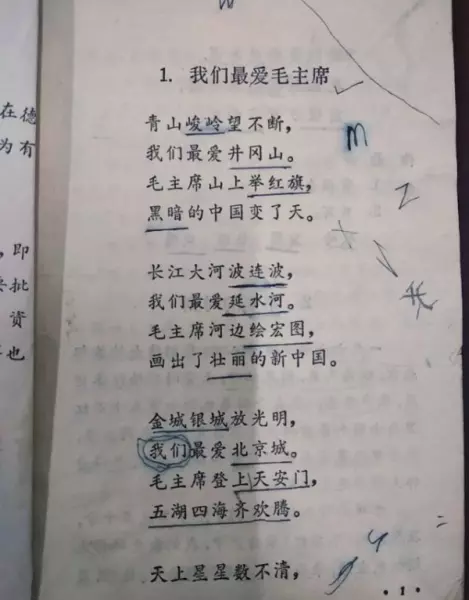 在德
为有
即
批
资
也
1. 我们最爱毛主席
青山峻岭望不断，
我们最爱井冈山。
毛主席山上举红旗，
黑暗的中国变了天。
长江大河波连波，
我们最爱延水河。
毛主席河边绘宏图，
画出了壮丽的新中国。
金城银城放光明，
我们最爱北京城。
毛主席登上天安门，
五湖四海齐欢腾。
天上星星数不清，
m
·1·